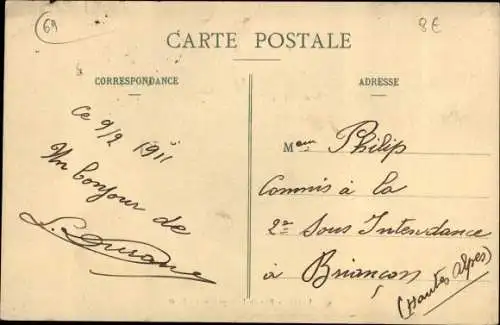 69
8€
CARTE POSTALE
CORRESPONDANCE
ADRESSE
Ce 9/2 1911
Un bonjour de
Meur Philip
Commis à la
2me Sous Intendance
à Briançon
(Hautes Alpes)